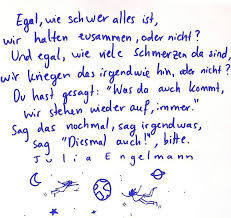 Egal, wie schwer alles ist,
wir halten zusammen, oder nicht?
Und egal, wie viele Schmerzen da sind,
wir kriegen das irgendwie hin, oder nicht?
Du hast gesagt: "Was da auch kommt,
wir stehen wieder auf, immer."
Sag das nochmal, sag irgendwas,
Sag "Diesmal auch!", bitte.
Julia Engelmann